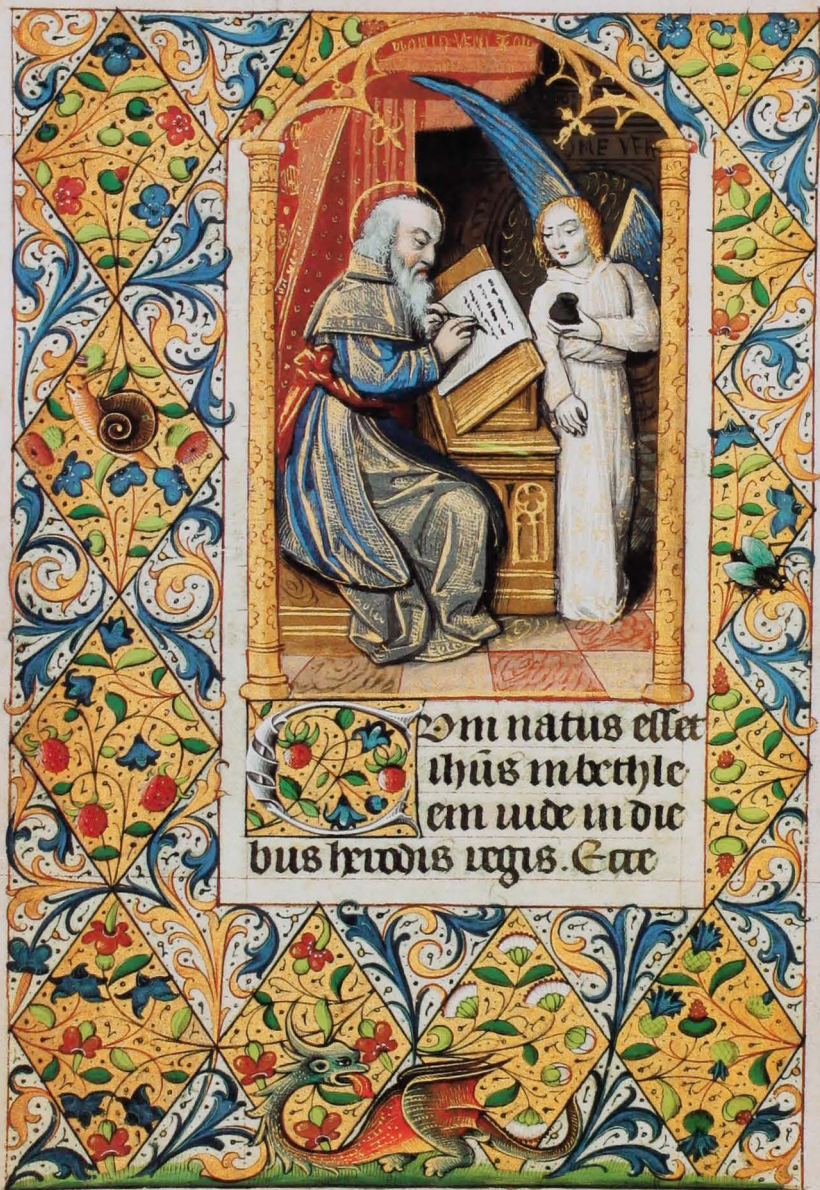 Cum natus esset
ihūs in bethle
em iude in die
bus herodis regis. Ecce